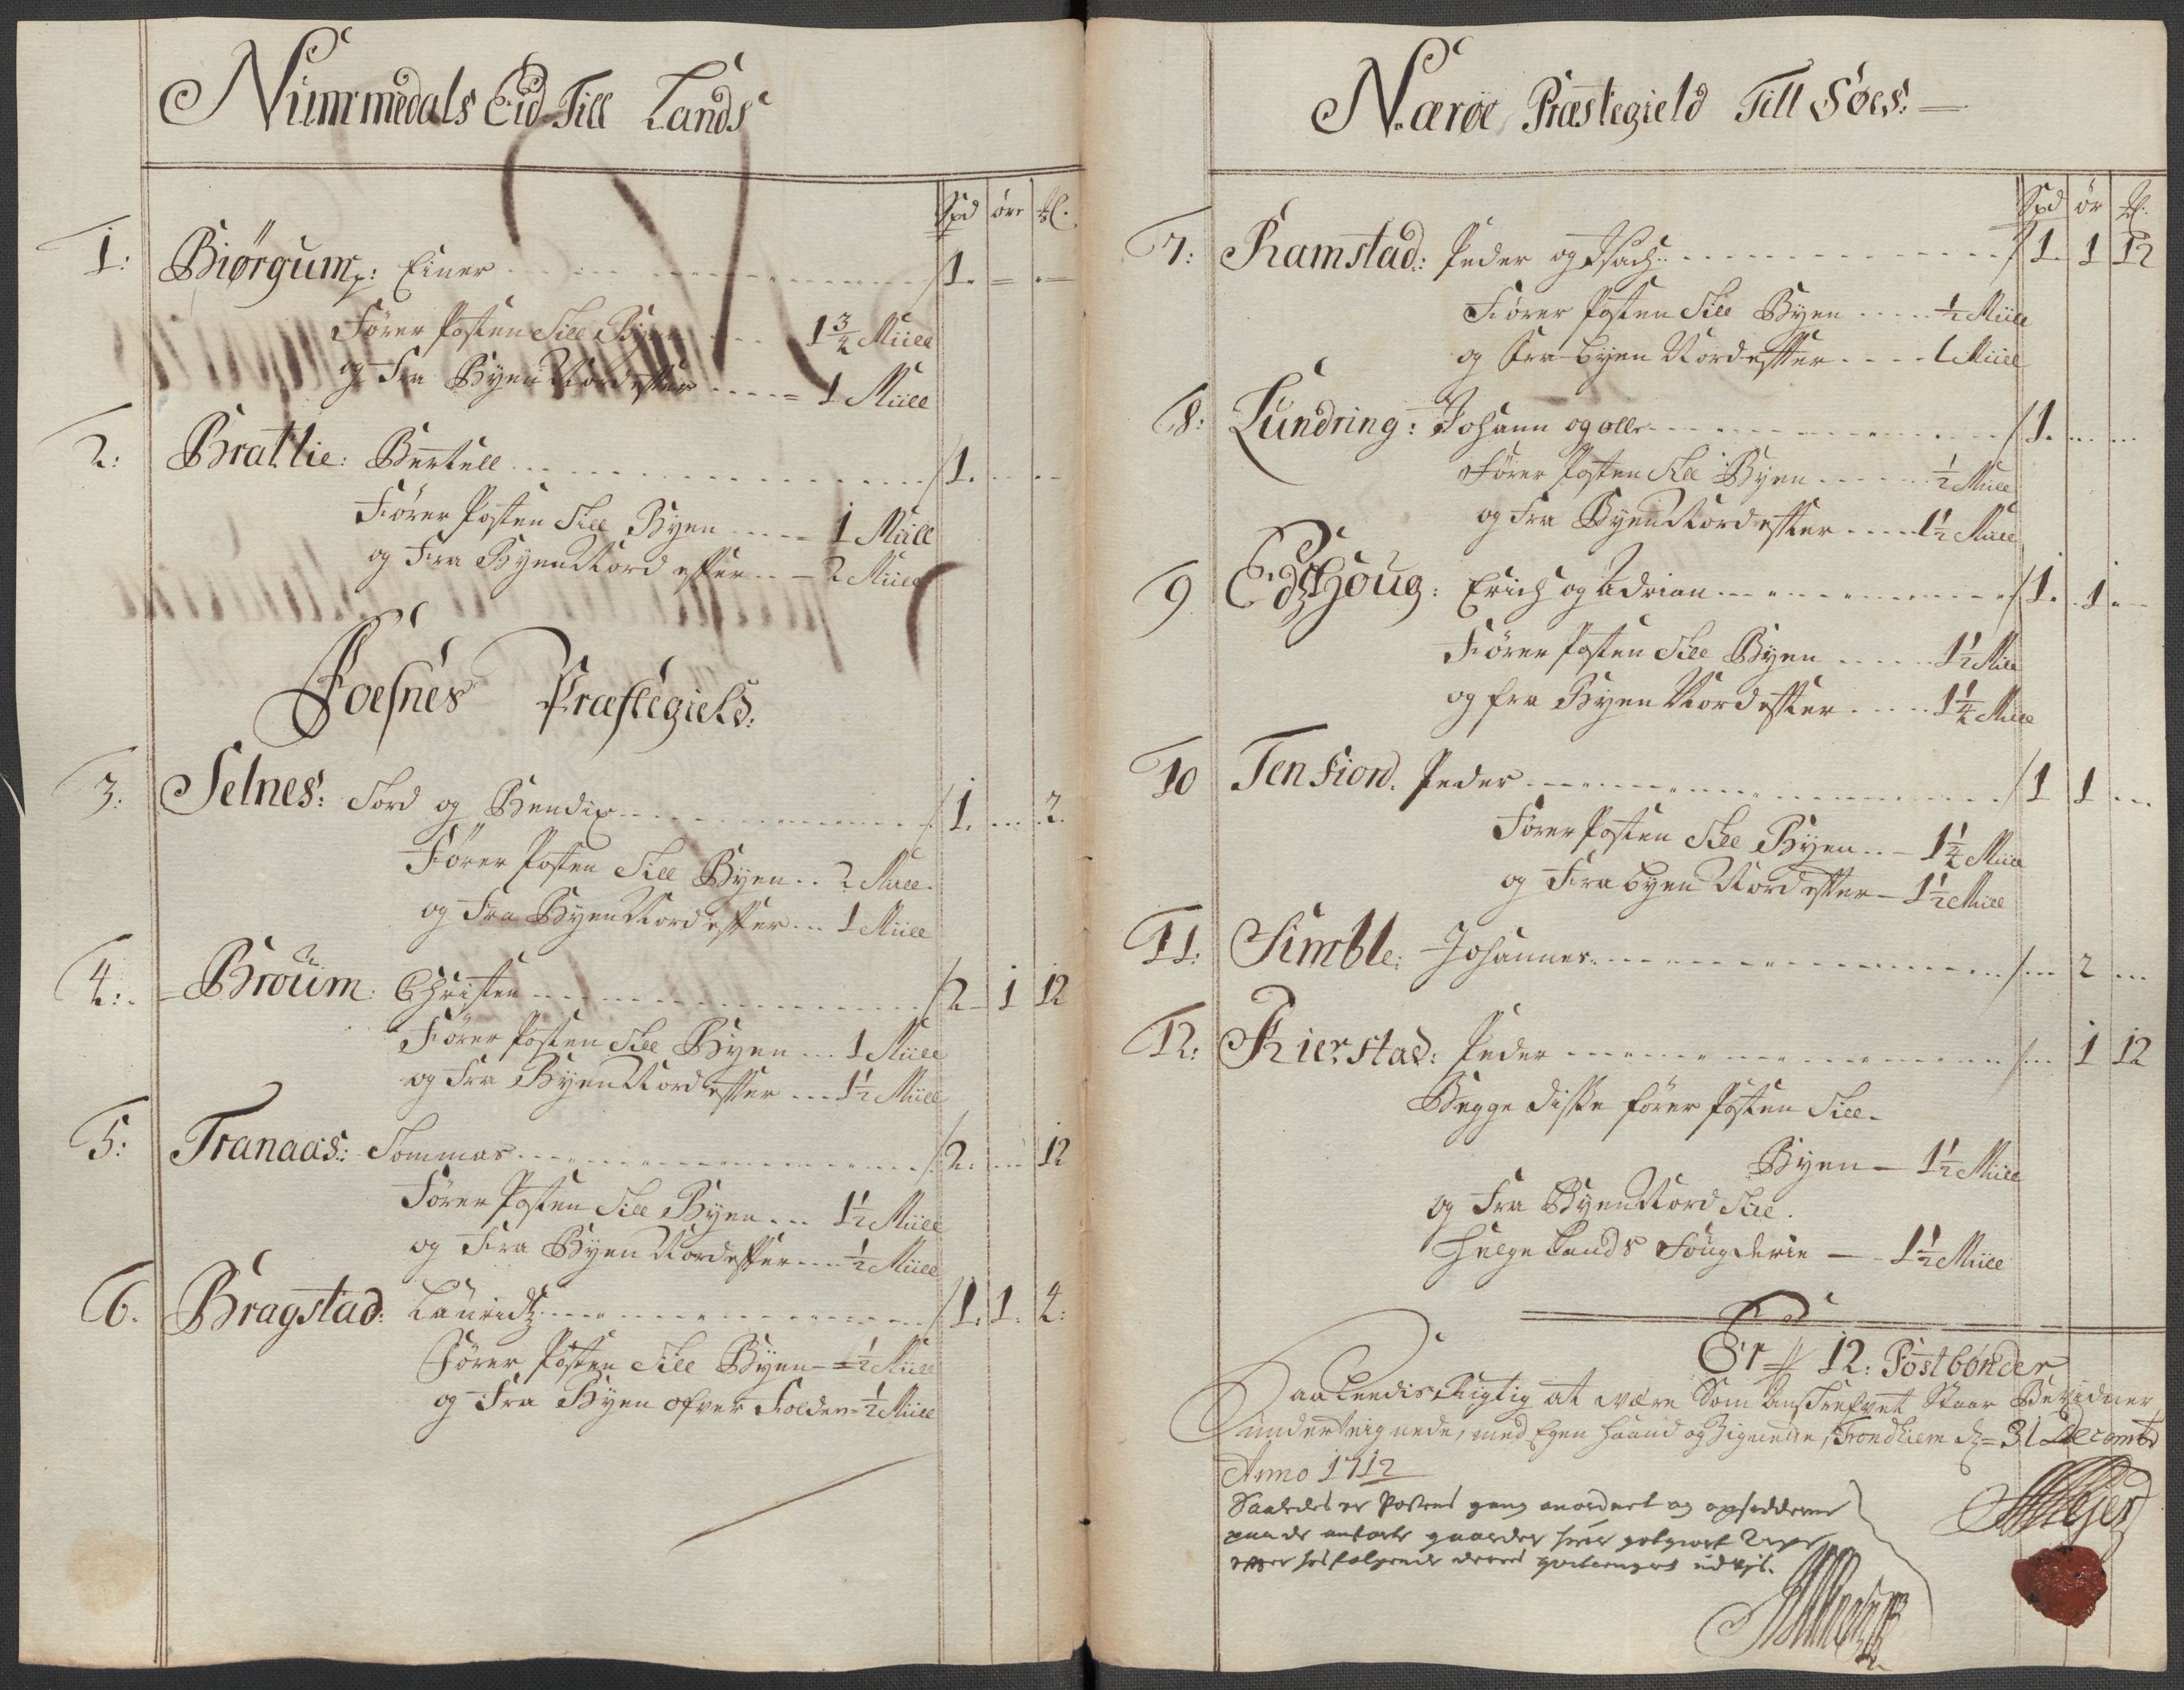 Nummedals Eid Till Lands
Spd øre
1: Biørgum: Einer 1. - -
Fører Posten Till Byen 1 3/4 Miill
og Fra Byen Nordefter 1 Miill
2: Brattlie: Bertell 1.
Fører Posten Till Byen 1 Miill
og Fra Byen Nord efter 2 Miill
Foesnes Præstegield:
3: Selnes: Tord og Bendix 1. 2.
Fører Posten Till Byen 2 Miill
og Fra Byen Nordefter 1 Miill
4: Broüm: Christen 2 1 12
Fører Posten Till Byen 1 Miill
og Fra Byen Nordefter 1 1/2 Miill
5: Tranaas: Tommas 2. 12
Fører Posten Till Byen 1 1/2 Miill
og Fra Byen Nordefter 1/2 Miill
6. Bragstad: Lauridtz 1. 1. 4:
Fører Posten Till Byen 1/2 Miill
og Fra Byen ofver Folden 1/2 Miill
Nærøe Præstegield Till Søes:
Spd ør
7: Ramstad: Peder og Isach 1. 1 12
Fører Posten Till Byen 1/2 Miill
og Fra byen Nordefter 1 Miill
8: Lundring: Johann og olle 1.
Fører Posten Till Byen 1/2 Miill
og Fra Byen Nordefter 1 1/2 Miill
9 Edshoug: Erich og Adrian 1. 1
Fører Posten Till Byen 1 1/2 Miill
og fra Byen Nordefter 1 1/4 Miill
10 Ten Fiord. Peder 1 1
Fører Posten Till Byen 1 1/4 Miill
og Fra byen Nordefter 1 1/2 Miill
11: Simble: Johannes 2
12: Kierstad: Peder 1 12
Begge disse fører Posten Till
Byen 1 1/2 Miill
og Fra Byen Nord Till
Helgelands Fougderie 1 1/2 Miill
Er 12: Postbønder
Saaledis Rigtig at være Som anskrefvet Staar Bevidner
underteignede, med Egen Haand og Signette, Trondhiem d. 31 Decembr
Anno 1712
Saaledes er Postens gang anordnet og opsidderne
paa de anførte gaarder
efter hosfølgende deres udvjs.